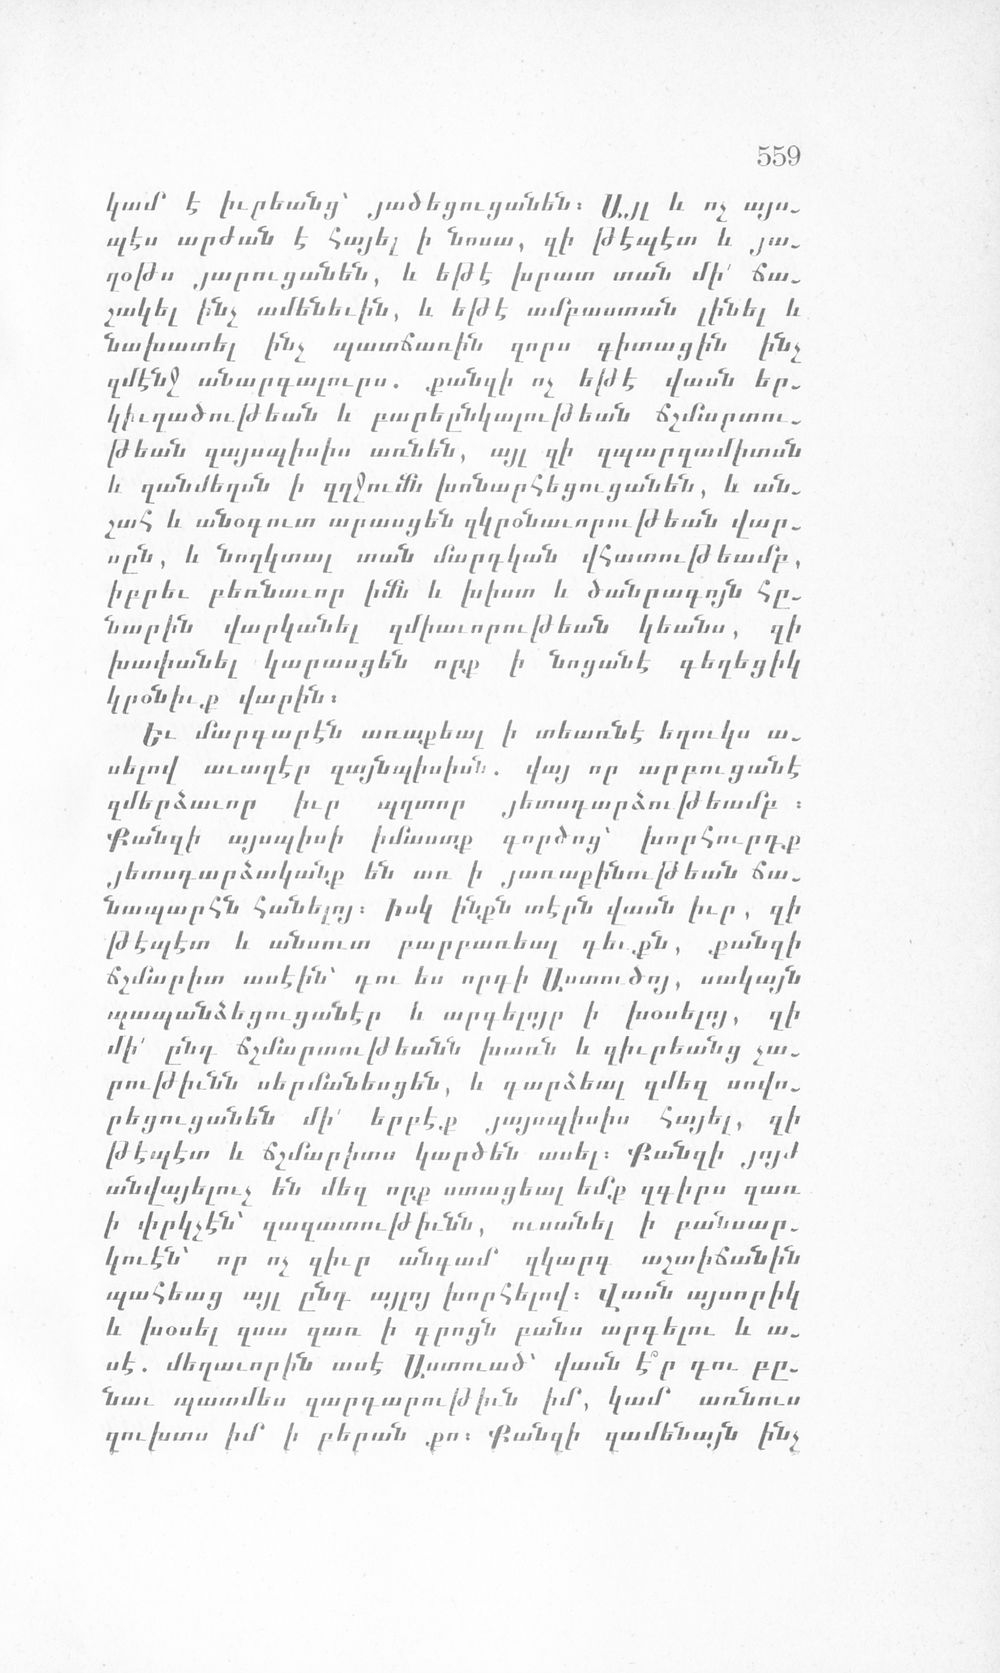 559
կամ՝ է իւրեանց՝ յածեցուցանեն։ Այլ և ոչ այս-
պէս արժան է հայել ի նոսա, զի թէպէտ և յա-
ղօթս յարուցանեն, և եթէ խրատ տան մի՛ ճա-
շակել ինչ ամենեւին, և եթէ ամբաստան լինել և
նախատել ինչ պատճառին զորս գիտացին ինչ
զմէնջ անարգալուրս. քանզի ոչ եթէ վասն եր-
կիւղածութեան և բարեընկալութեան ճշմարտու-
թեան զայսպիսիս առնեն, այլ զի զպարզամիտսն
և զանմեղսն ի զղջումն խոնարհեցուցանեն, և ան-
շահ և անօգուտ արասցեն զկրօնաւորութեան վար-
սըն, և նողկտալ տան մարդկան վհատութեամբ,
իբրեւ բեռնաւոր իմն և խիստ և ծանրագոյն հը-
նարին վարկանել զմիաւորութեան կեանս, զի
խափանել կարասցեն որք ի նոցանէ գեղեցիկ
կրօնիւք վարին։
Եւ մարգարէն առաքեալ ի տեառնէ եղուկս ա-
սելով աւաղէր զայնպիսիսն. վայ որ արբուցանէ
զմերձաւոր իւր պղտոր յետադարձութեամբ ։
Քանզի այսպիսի իմաստք գործոց՝ խորհուրդք
յետադարձականք են առ ի յառաքինութեան ճա-
նապարհն հանելոյ։ Իսկ ինքն տէրն վասն իւր, զի
թէպէտ և անսուտ բարբառեալ դեւքն, քանզի
ճշմարիտ ասէին՝ դու ես որդի Աստուծոյ, սակայն
պապանձեցուցանէր և արգելոյր ի խօսելոյ, զի
մի՛ ընդ ճշմարտութեանն խառն և զիւրեանց չա-
րութիւնն սերմանեսցեն, և դարձեալ զմեզ սովո-
րեցուցանեն մի՛ երբէք յայսպիսիս հայել, զի
թէպէտ և ճշմարիտս կարծեն ասել։ Քանզի յոյժ
անվայելուչ են մեզ որք ստացեալ եմք զգիրս զառ
ի փրկչէն՝ զազատութիւնն, ուսանել ի բանսար-
կուէն՝ որ ոչ զիւր անդամ՝ զկարգ աշտիճանին
պահեաց այլ ընդ այլոյ խորհելով։ Վասն այսորիկ
և խօսել զսա զառ ի գրոցն բանս արգելու և ա-
սէ. մեղաւորին ասէ Աստուած՝ վասն է՞ր դու բը-
նաւ պատմես զարդարութիւն իմ, կամ՝ առնուս
զուխտս իմ՝ ի բերան քո։ Քանզի զամենայն ինչ